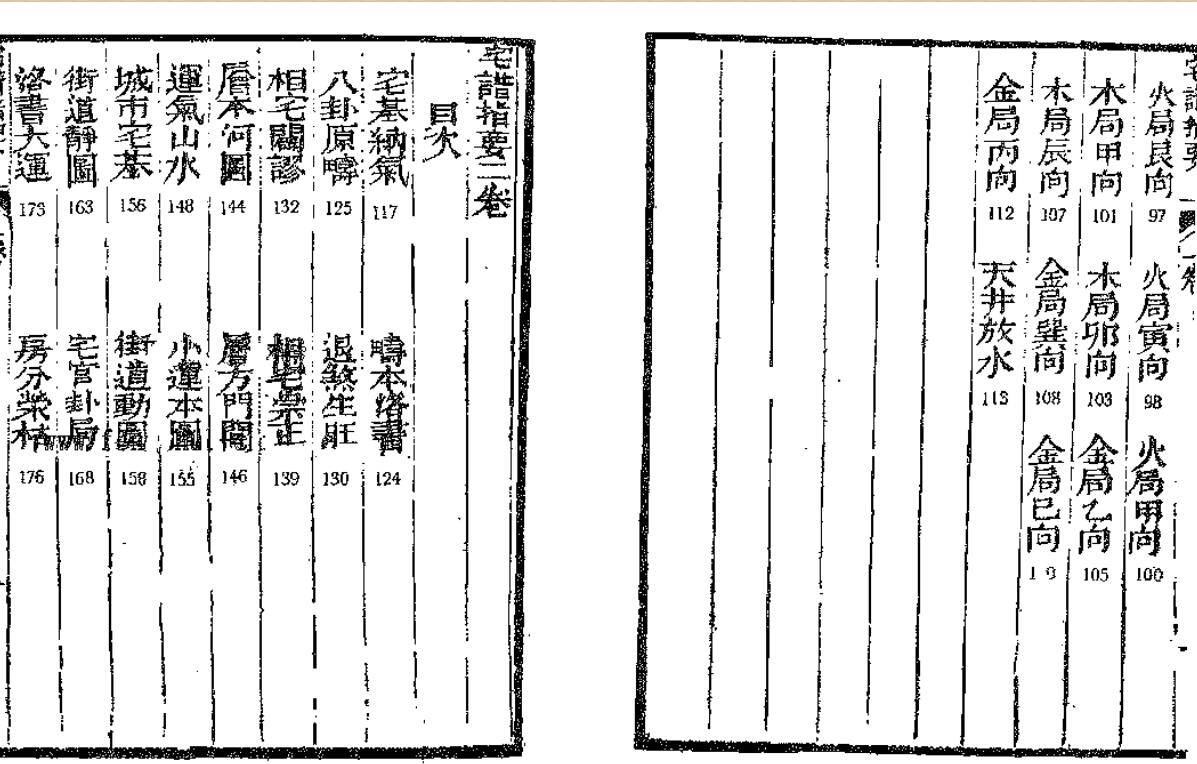 火局艮向 97 火局寅向 98 火局甲向 100
木局甲向 101 木局卯向 103 金局乙向 105
木局辰向 107 金局巽向 108 金局巳向
金局丙向 112 天井放水 113
宅譜指要二卷
目次
宅基納氣 117 疇本洛書 124
八卦原疇 125 退煞生旺 130
相宅闢謬 132 相宅崇正 139
層本河圖 144 層方門間 146
運氣山水 148 小運本圖 155
城市宅基 156 街道動圖 158
街道靜圖 163 宅宮卦局 168
洛書大運 173 房分榮枯 176